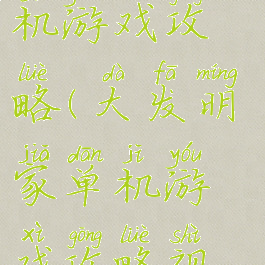 机游戏攻
lüè dà fā míng
略(大发明
jiā dān jī yóu
家单机游
xì gōng lüè shì
戏攻略视